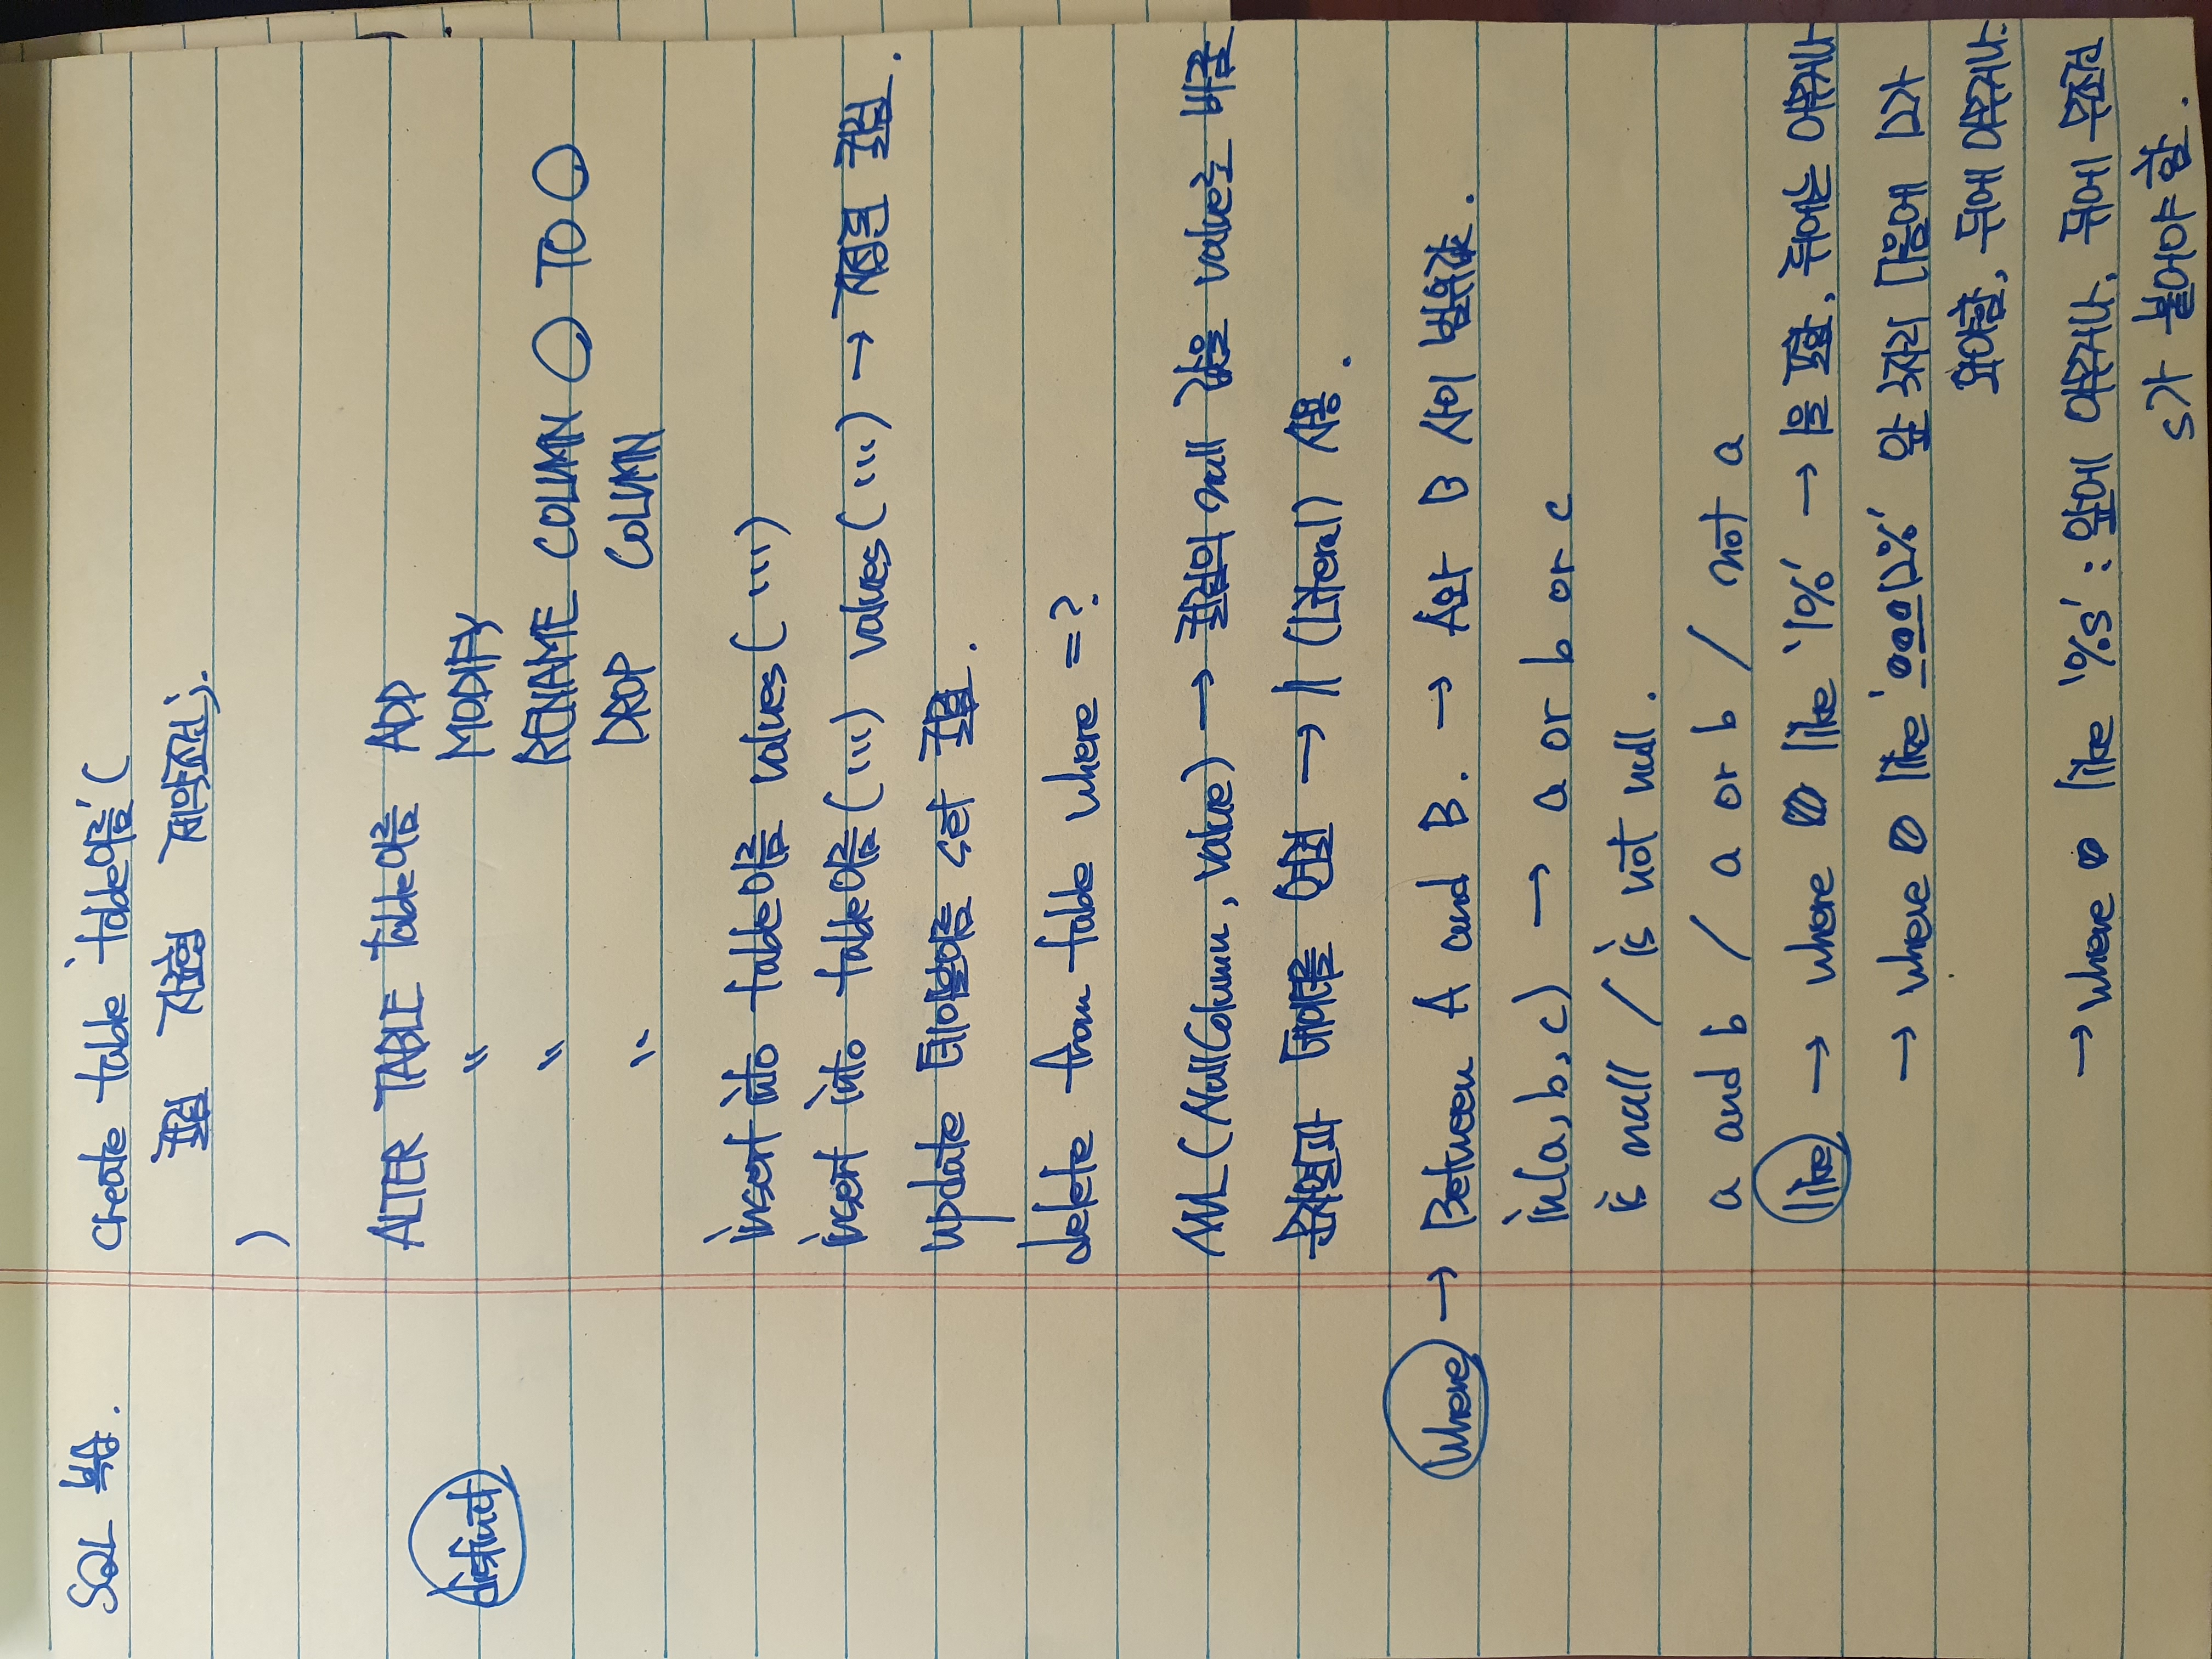 SQL 복습.
create table 'table이름' (
컬럼 자료형 제약조건;
)
ALTER TABLE table이름 ADD
distinct
〃 MODIFY
〃 RENAME COLUMN ○ TO ○
〃 DROP COLUMN
insert into table이름 values( ... )
insert into table이름( ... ) values( ... ) → 지정된 컬럼.
update 테이블이름 set 컬럼.
delete from table where = ?
NVL (NullColumn, value) → 컬럼의 null 값을 value로 바꿈
문자열과 데이터를 연결 → || (Literal) 사용.
where → Between A and B. → A와 B 사이 범위값.
in(a, b, c) → a or b or c
is null / is not null.
a and b / a or b / not a
like → where like '1%' → 1을 포함, 뒤에는 아무거나
→ where like '___12%' 앞 3자리 다음에 12가
와야함, 뒤에 아무거나.
→ where like '%s' : 앞에 아무거나, 뒤에 무조건
s가 붙어야 함.